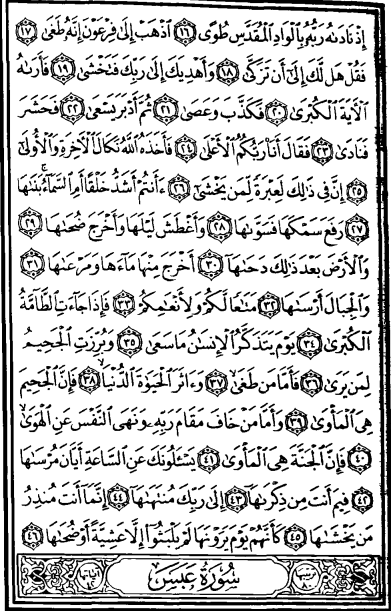 إِذْ نَادَىٰهُ رَبُّهُۥ بِٱلْوَادِ ٱلْمُقَدَّسِ طُوًى ١٦ ٱذْهَبْ إِلَىٰ فِرْعَوْنَ إِنَّهُۥ طَغَىٰ ١٧
فَقُلْ هَل لَّكَ إِلَىٰٓ أَن تَزَكَّىٰ ١٨ وَأَهْدِيَكَ إِلَىٰ رَبِّكَ فَتَخْشَىٰ ١٩ فَأَرَىٰهُ
ٱلْأٓيَةَ ٱلْكُبْرَىٰ ٢٠ فَكَذَّبَ وَعَصَىٰ ٢١ ثُمَّ أَدْبَرَ يَسْعَىٰ ٢٢ فَحَشَرَ
فَنَادَىٰ ٢٣ فَقَالَ أَنَا۠ رَبُّكُمُ ٱلْأَعْلَىٰ ٢٤ فَأَخَذَهُ ٱللَّهُ نَكَالَ ٱلْأٓخِرَةِ وَٱلْأُولَىٰٓ
٢٥ إِنَّ فِى ذَٰلِكَ لَعِبْرَةً لِّمَن يَخْشَىٰٓ ٢٦ ءَأَنتُمْ أَشَدُّ خَلْقًا أَمِ ٱلسَّمَآءُ ۚ بَنَىٰهَا
٢٧ رَفَعَ سَمْكَهَا فَسَوَّىٰهَا ٢٨ وَأَغْطَشَ لَيْلَهَا وَأَخْرَجَ ضُحَىٰهَا ٢٩
وَٱلْأَرْضَ بَعْدَ ذَٰلِكَ دَحَىٰهَآ ٣٠ أَخْرَجَ مِنْهَا مَآءَهَا وَمَرْعَىٰهَا ٣١
وَٱلْجِبَالَ أَرْسَىٰهَا ٣٢ مَتَـٰعًا لَّكُمْ وَلِأَنْعَـٰمِكُمْ ٣٣ فَإِذَا جَآءَتِ ٱلطَّآمَّةُ
ٱلْكُبْرَىٰ ٣٤ يَوْمَ يَتَذَكَّرُ ٱلْإِنسَـٰنُ مَا سَعَىٰ ٣٥ وَبُرِّزَتِ ٱلْجَحِيمُ
لِمَن يَرَىٰ ٣٦ فَأَمَّا مَن طَغَىٰ ٣٧ وَءَاثَرَ ٱلْحَيَوٰةَ ٱلدُّنْيَا ٣٨ فَإِنَّ ٱلْجَحِيمَ
هِىَ ٱلْمَأْوَىٰ ٣٩ وَأَمَّا مَنْ خَافَ مَقَامَ رَبِّهِۦ وَنَهَى ٱلنَّفْسَ عَنِ ٱلْهَوَىٰ
٤٠ فَإِنَّ ٱلْجَنَّةَ هِىَ ٱلْمَأْوَىٰ ٤١ يَسْـَٔلُونَكَ عَنِ ٱلسَّاعَةِ أَيَّانَ مُرْسَىٰهَا
٤٢ فِيمَ أَنتَ مِن ذِكْرَىٰهَآ ٤٣ إِلَىٰ رَبِّكَ مُنتَهَىٰهَآ ٤٤ إِنَّمَآ أَنتَ مُنذِرُ
مَن يَخْشَىٰهَا ٤٥ كَأَنَّهُمْ يَوْمَ يَرَوْنَهَا لَمْ يَلْبَثُوٓا۟ إِلَّا عَشِيَّةً أَوْ ضُحَىٰهَا ٤٦
سُورَةُ عَبَسَ